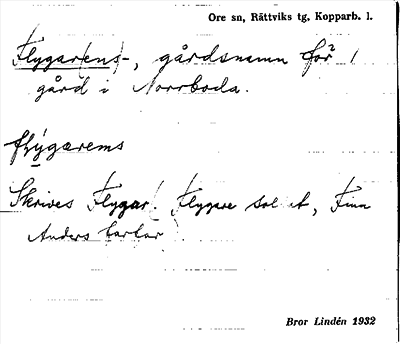 Ore sn, Rättviks tg, Kopparb. l.
Flygar(ens)-, gårdsnamn för 1
gård i Norrboda.
flýgærems
Skrives Flygar. Flygare soldat, Finn
Anders farfar
Bror Lindén 1932